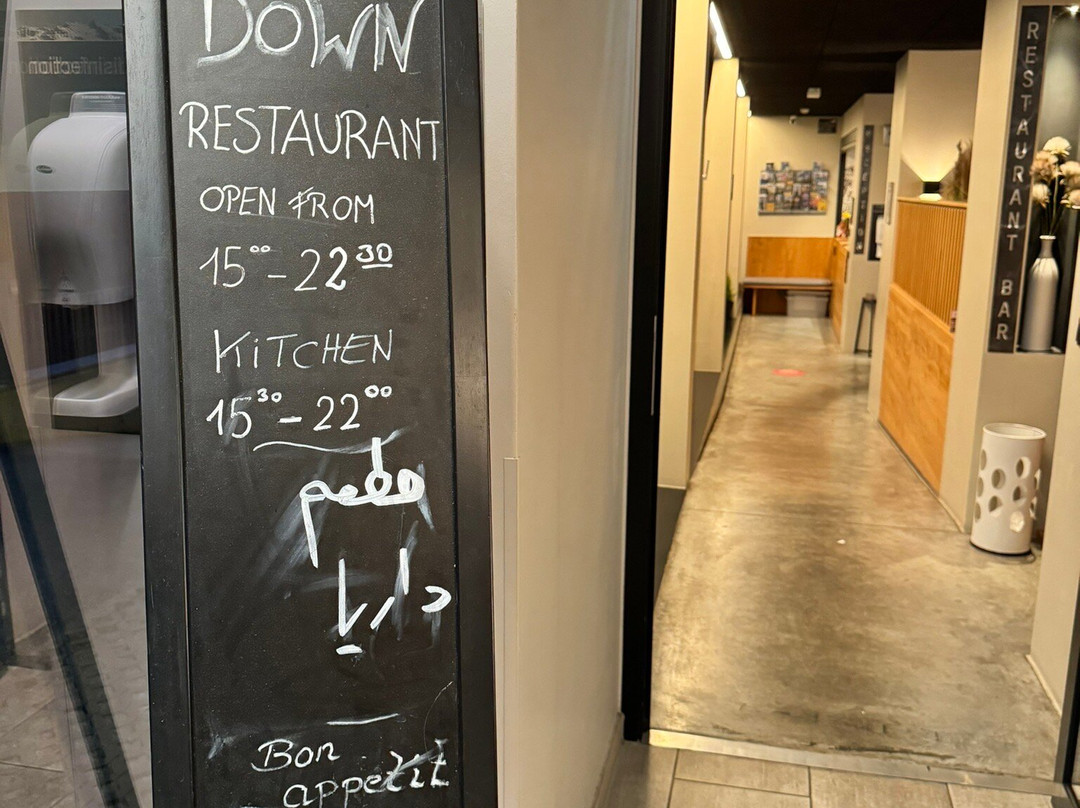 DOWN
RESTAURANT
OPEN FROM
15⁰⁰ - 22³⁰
KiTCHEN
15³⁰ - 22⁰⁰
مطعم
داريا
Bon
appetit
RESTAURANT BAR